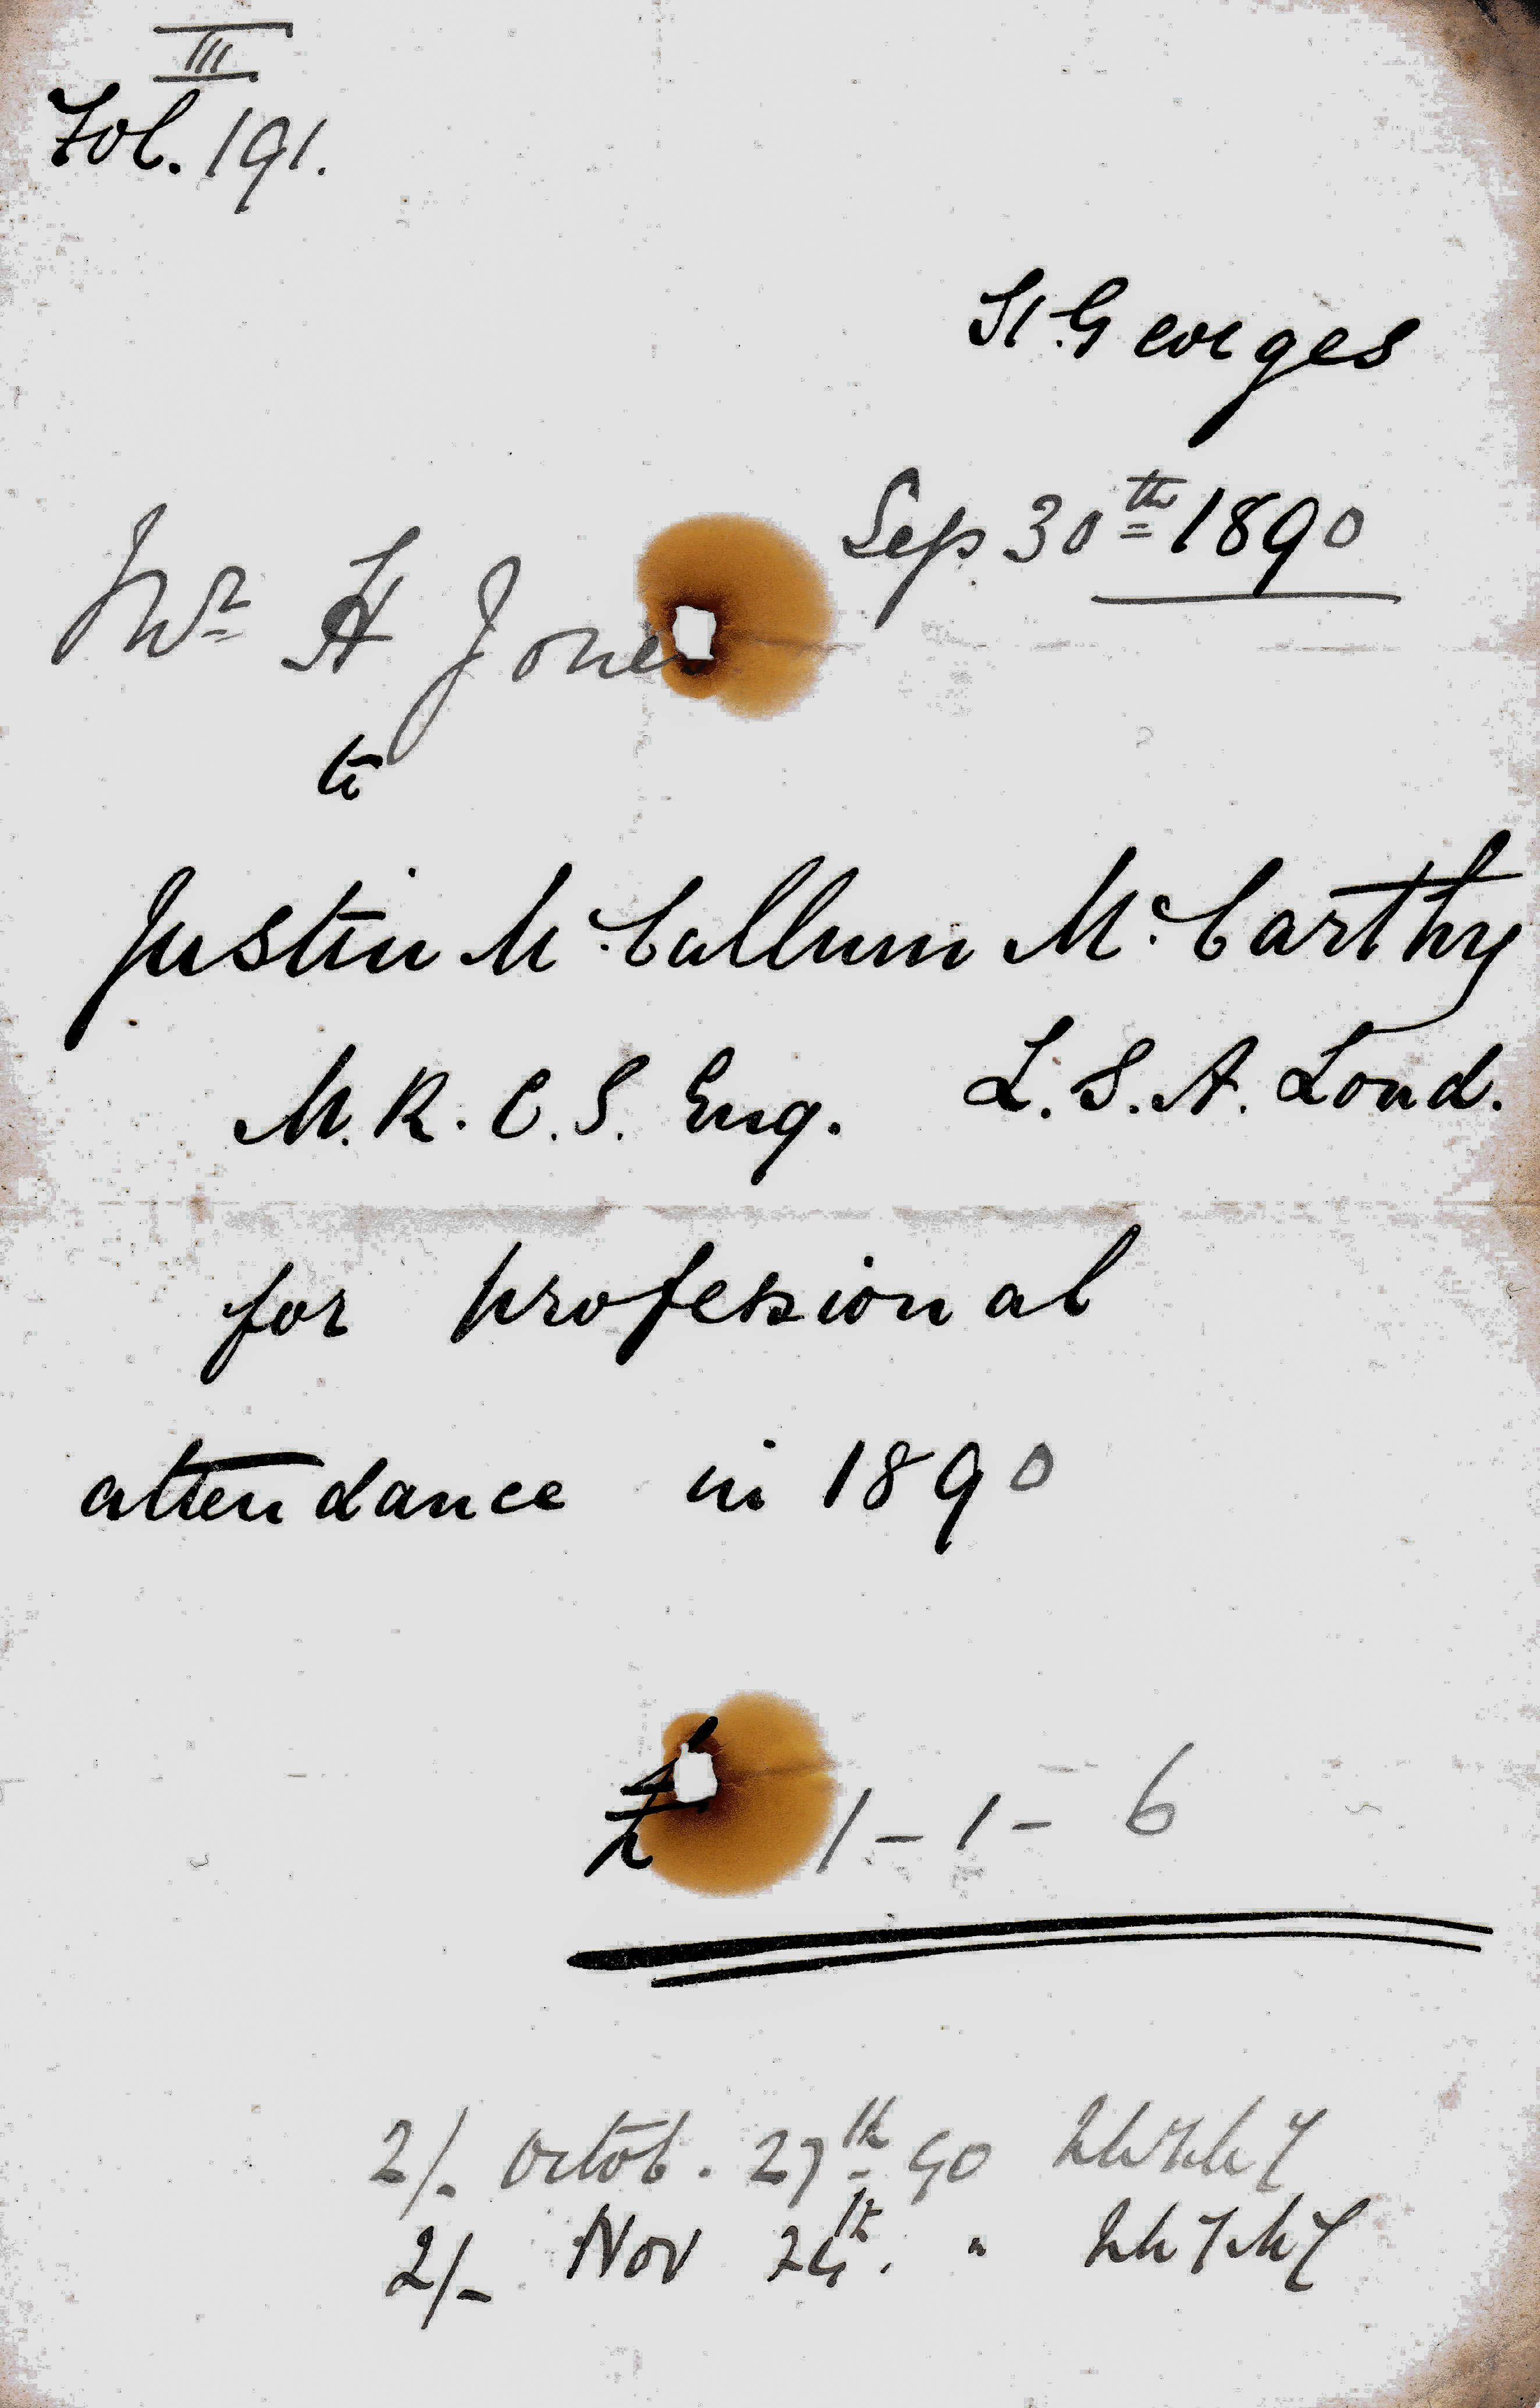 III
Fol. 191.
St. Georges
Sep. 30th 1890
Mr H Jones
to
Justin Mc.Callum Mc.Carthy
M.R.C.S. Eng. L.S.A. Lond.
for professional
attendance in 1890
£ 1-1-6
2/- Octob. 27th 90
2/- Nov 24th. "